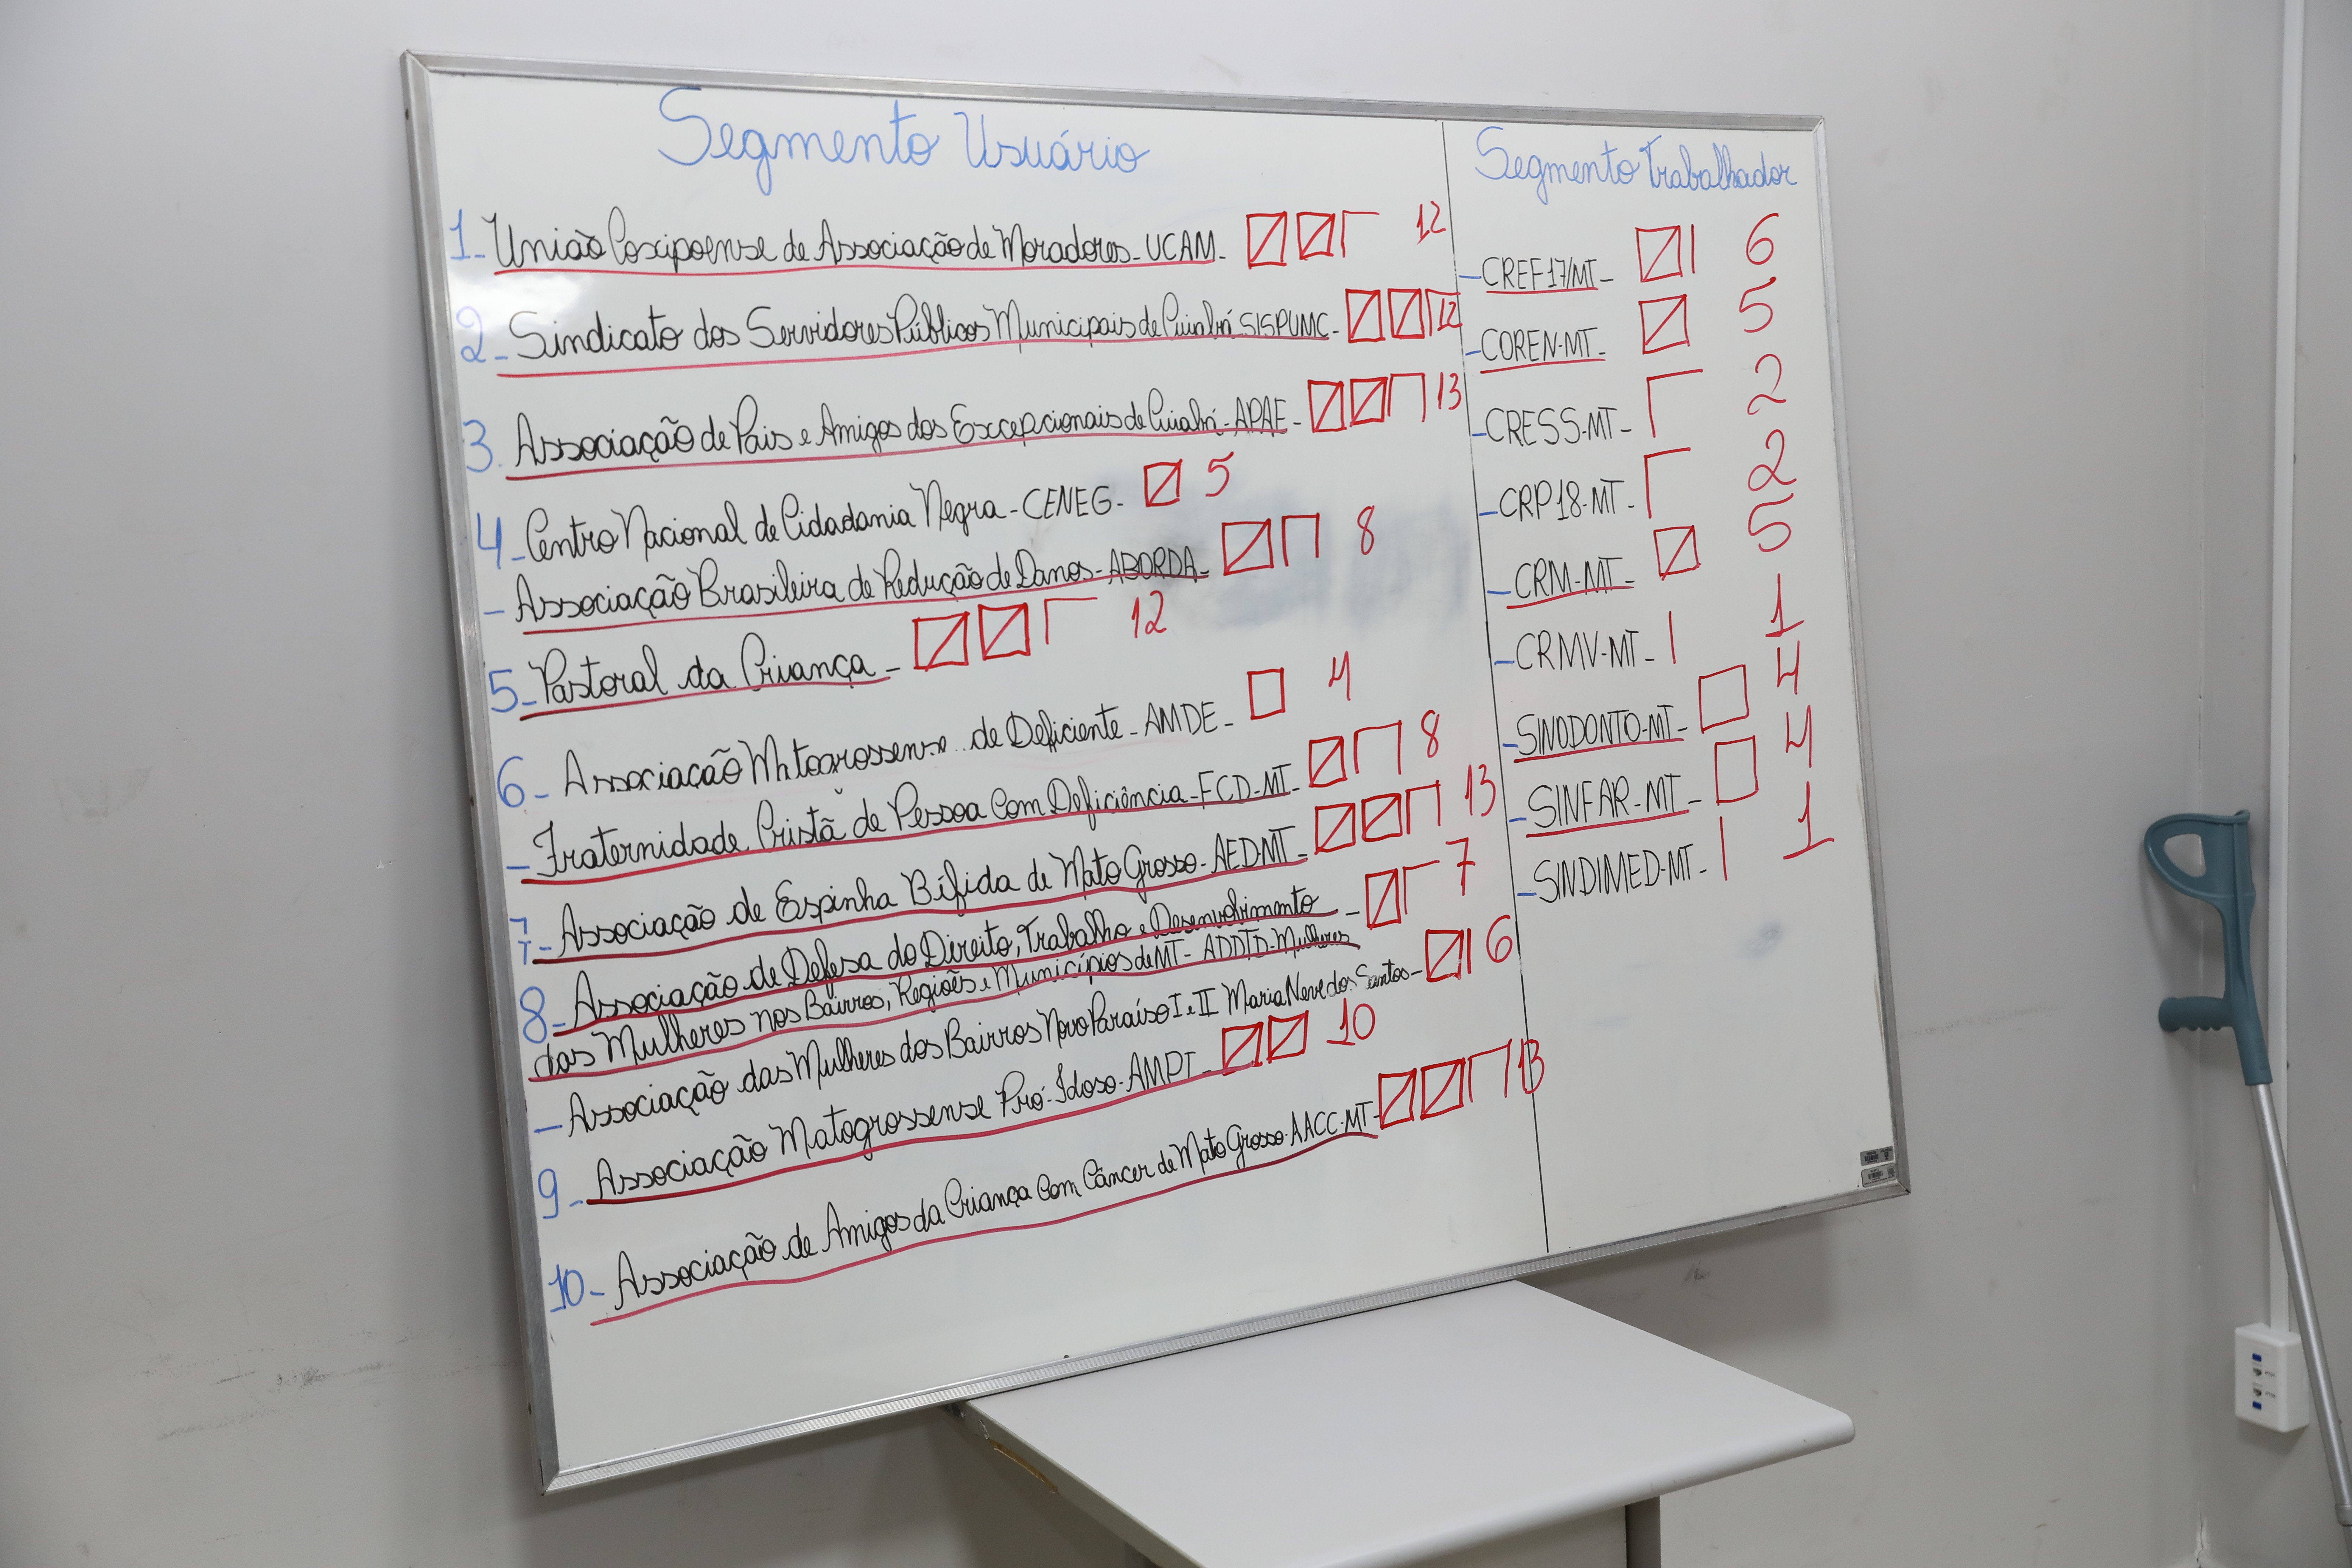 Segmento Usuário
1- União Coxipoense de Associação de Moradores - UCAM - 12
2- Sindicato dos Servidores Públicos Municipais de Cuiabá SISPUMC - 12
3. Associação de Pais e Amigos dos Excepcionais de Cuiabá - APAE - 13
4- Centro Nacional de Cidadania Negra - CENEG - 5
- Associação Brasileira de Redução de Danos - ABORDA - 8
5- Pastoral da Criança - 12
6- Associação Matogrossense de Deficiente - AMDE - 4
- Fraternidade Cristã de Pessoa Com Deficiência - FCD-MT - 8
7- Associação de Espinha Bífida de Mato Grosso - AED-MT - 13
8- Associação de Defesa do Direito, Trabalho e Desenvolvimento - 7
das Mulheres nos Bairros, Regiões e Municípios de MT - ADDTD-Mulheres
- Associação das Mulheres dos Bairros Novo Paraíso I e II Maria Neve dos Santos - 6
9- Associação Matogrossense Pró-Idoso - AMPI - 10
10- Associação de Amigos da Criança Com Câncer de Mato Grosso - AACC-MT - 13
Segmento Trabalhador
- CREF17/MT - 6
- COREN-MT - 5
- CRESS-MT - 2
- CRP18-MT - 2
- CRM-MT - 5
- CRMV-MT - 1
- SINODONTO-MT - 4
- SINFAR-MT - 4
- SINDIMED-MT - 1